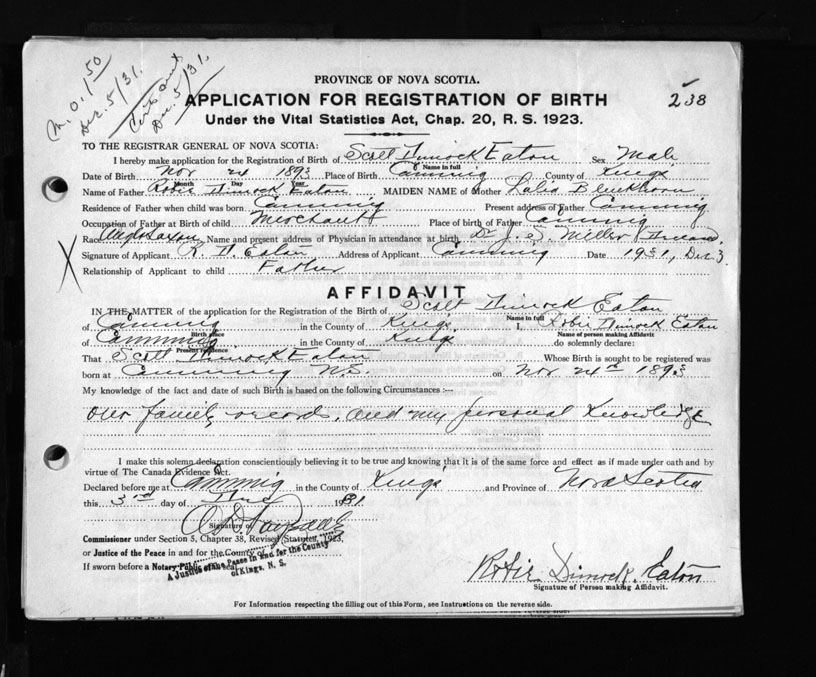 M.O. 1.50
Dec. 5/31.
Dec. 5/31.
PROVINCE OF NOVA SCOTIA.
APPLICATION FOR REGISTRATION OF BIRTH
238
Under the Vital Statistics Act, Chap. 20, R. S. 1923.
TO THE REGISTRAR GENERAL OF NOVA SCOTIA:
I hereby make application for the Registration of Birth of Scott Dimock Eaton Sex Male
Name in full
Date of Birth Nov 24 1893 Place of Birth Canning County of Kings
Month Day Year
Name of Father Robie Dimock Eaton MAIDEN NAME of Mother Lalia Blenkhorn
Residence of Father when child was born Canning Present address of Father Canning
Occupation of Father at Birth of child Merchant Place of birth of Father Canning
Race Anglo Saxon Name and present address of Physician in attendance at birth Dr J. S. Miller
Signature of Applicant R. D. Eaton Address of Applicant Canning Date 1931, Dec 3.
Relationship of Applicant to child Father
X
AFFIDAVIT
IN THE MATTER of the application for the Registration of Birth of Scott Dimock Eaton
Name in full
of Canning in the County of Kings I, Robie Dimock Eaton
Birth place Name of person making Affidavit
of Canning in the County of Kings do solemnly declare:
Present residence
That Scott Dimock Eaton Whose Birth is sought to be registered was
born at Canning N.S. on Nov 24th 1893
My knowledge of the fact and date of such Birth is based on the following Circumstances :—
Our family records, and my personal Knowledge
I make this solemn declaration conscientiously believing it to be true and knowing that it is of the same force and effect as if made under oath and by
virtue of The Canada Evidence Act.
Declared before me at Canning in the County of Kings and Province of Nova Scotia
this 3rd day of Dec 1931
Signature of
Commissioner under Section 5, Chapter 38, Revised Statutes, 1923,
or Justice of the Peace in and for the County of
If sworn before a Notary Public seal
A Justice of the Peace in and for the County
of Kings, N. S.
Robie Dimock Eaton
Signature of Person making Affidavit.
For Information respecting the filling out of this Form, see Instructions on the reverse side.